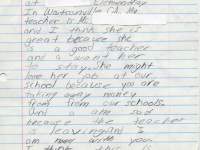 at Elementary
In Watsonville CA. My
teacher is Ms.
and I think she is
great because she
is a good teacher
and I want her
to stay. She might
lose her job at our
school because you are
taking away money
from from our schools.
and a am sad
because the teacher
is leaving and I
am
I think this is